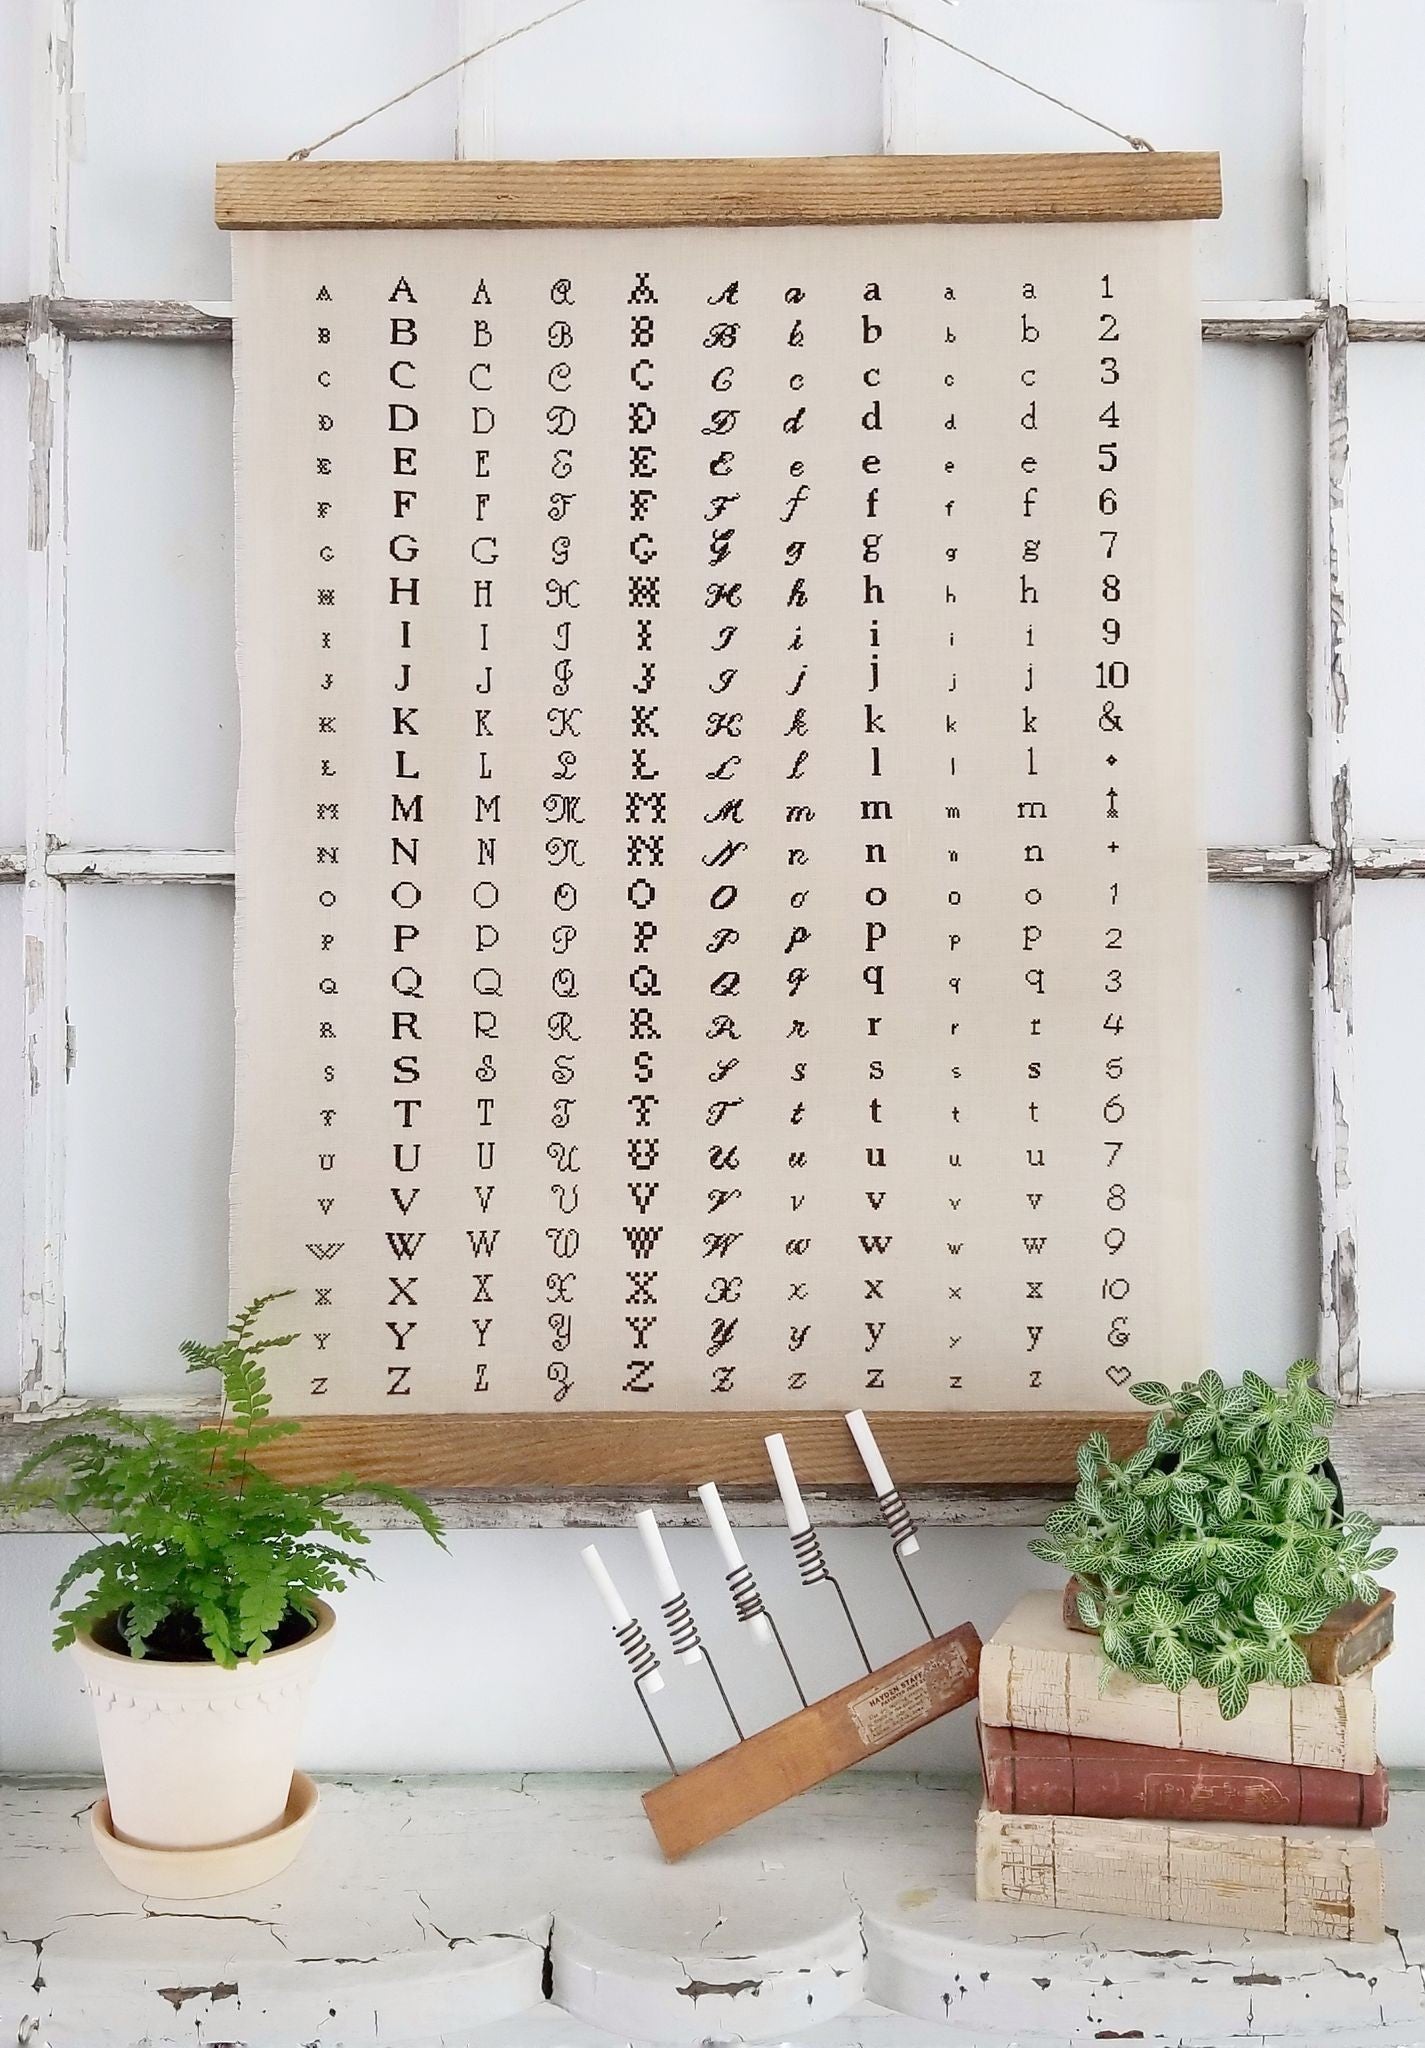 A A A A A A a a a a 1
B B B B B B b b b b 2
C C C C C C c c c c 3
D D D D D D d d d d 4
E E E E E E e e e e 5
F F F F F F f f f f 6
G G G G G G g g g g 7
H H H H H H h h h h 8
I I I I I I i i i i 9
J J J J J J j j j j 10
K K K K K K k k k k &
L L L L L L l l l l
M M M M M M m m m m
N N N N N N n n n n +
O O O O O O o o o o 1
P P P P P P p p p p 2
Q Q Q Q Q Q q q q q 3
R R R R R R r r r r 4
S S S S S S s s s s 5
T T T T T T t t t t 6
U U U U U U u u u u 7
V V V V V V v v v v 8
W W W W W W w w w w 9
X X X X X X x x x x 10
Y Y Y Y Y Y y y y y &
Z Z Z Z Z Z z z z z ♡
HAYDEN STAFF